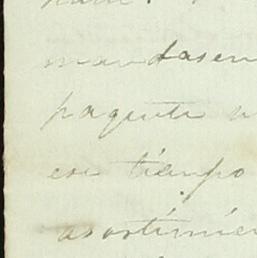 mandasen
paquete
ese tiempo
asortimien